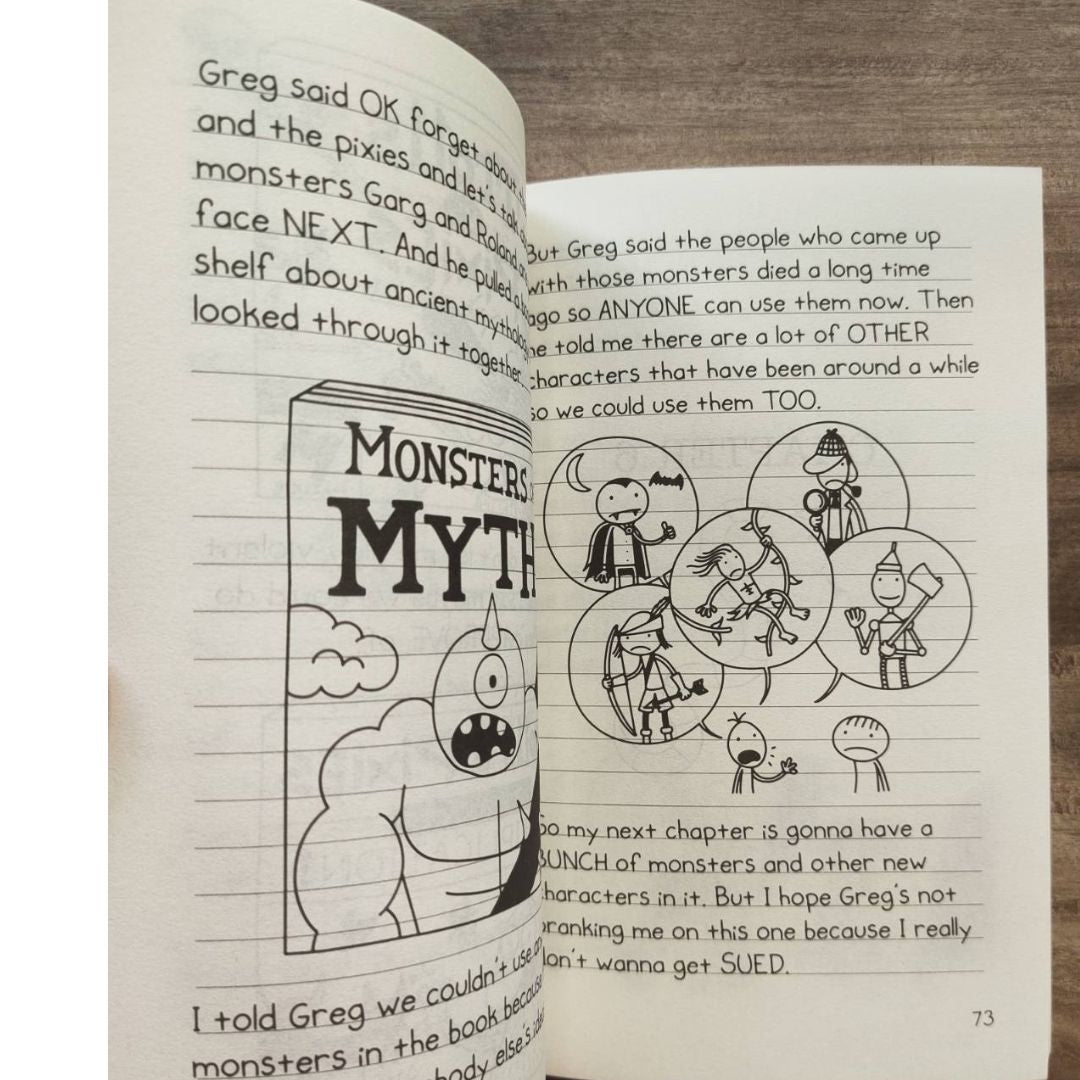 Greg said OK forget about
and the pixies and let's talk
monsters Garg and Roland
face NEXT. And he pulled a
shelf about ancient mytholog
looked through it together.
MONSTERS
MYTH
I told Greg we couldn't use
monsters in the book because
body else's
But Greg said the people who came up
with those monsters died a long time
ago so ANYONE can use them now. Then
he told me there are a lot of OTHER
characters that have been around a while
so we could use them TOO.
So my next chapter is gonna have a
BUNCH of monsters and other new
characters in it. But I hope Greg's not
pranking me on this one because I really
don't wanna get SUED.
73